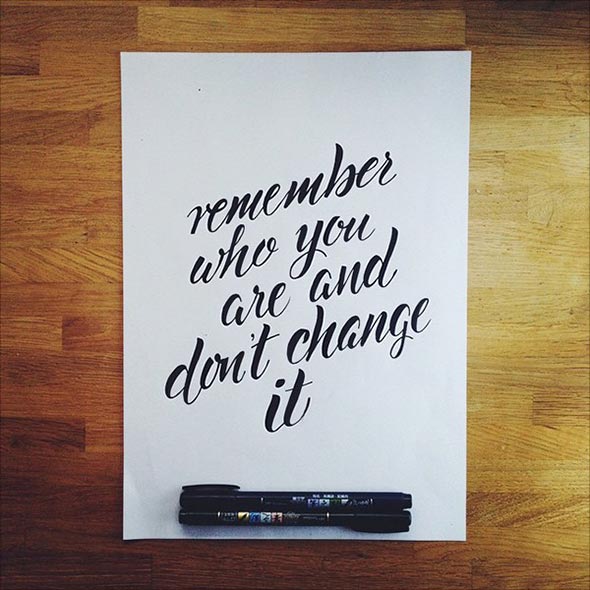 remember
who you
are and
don't change
it